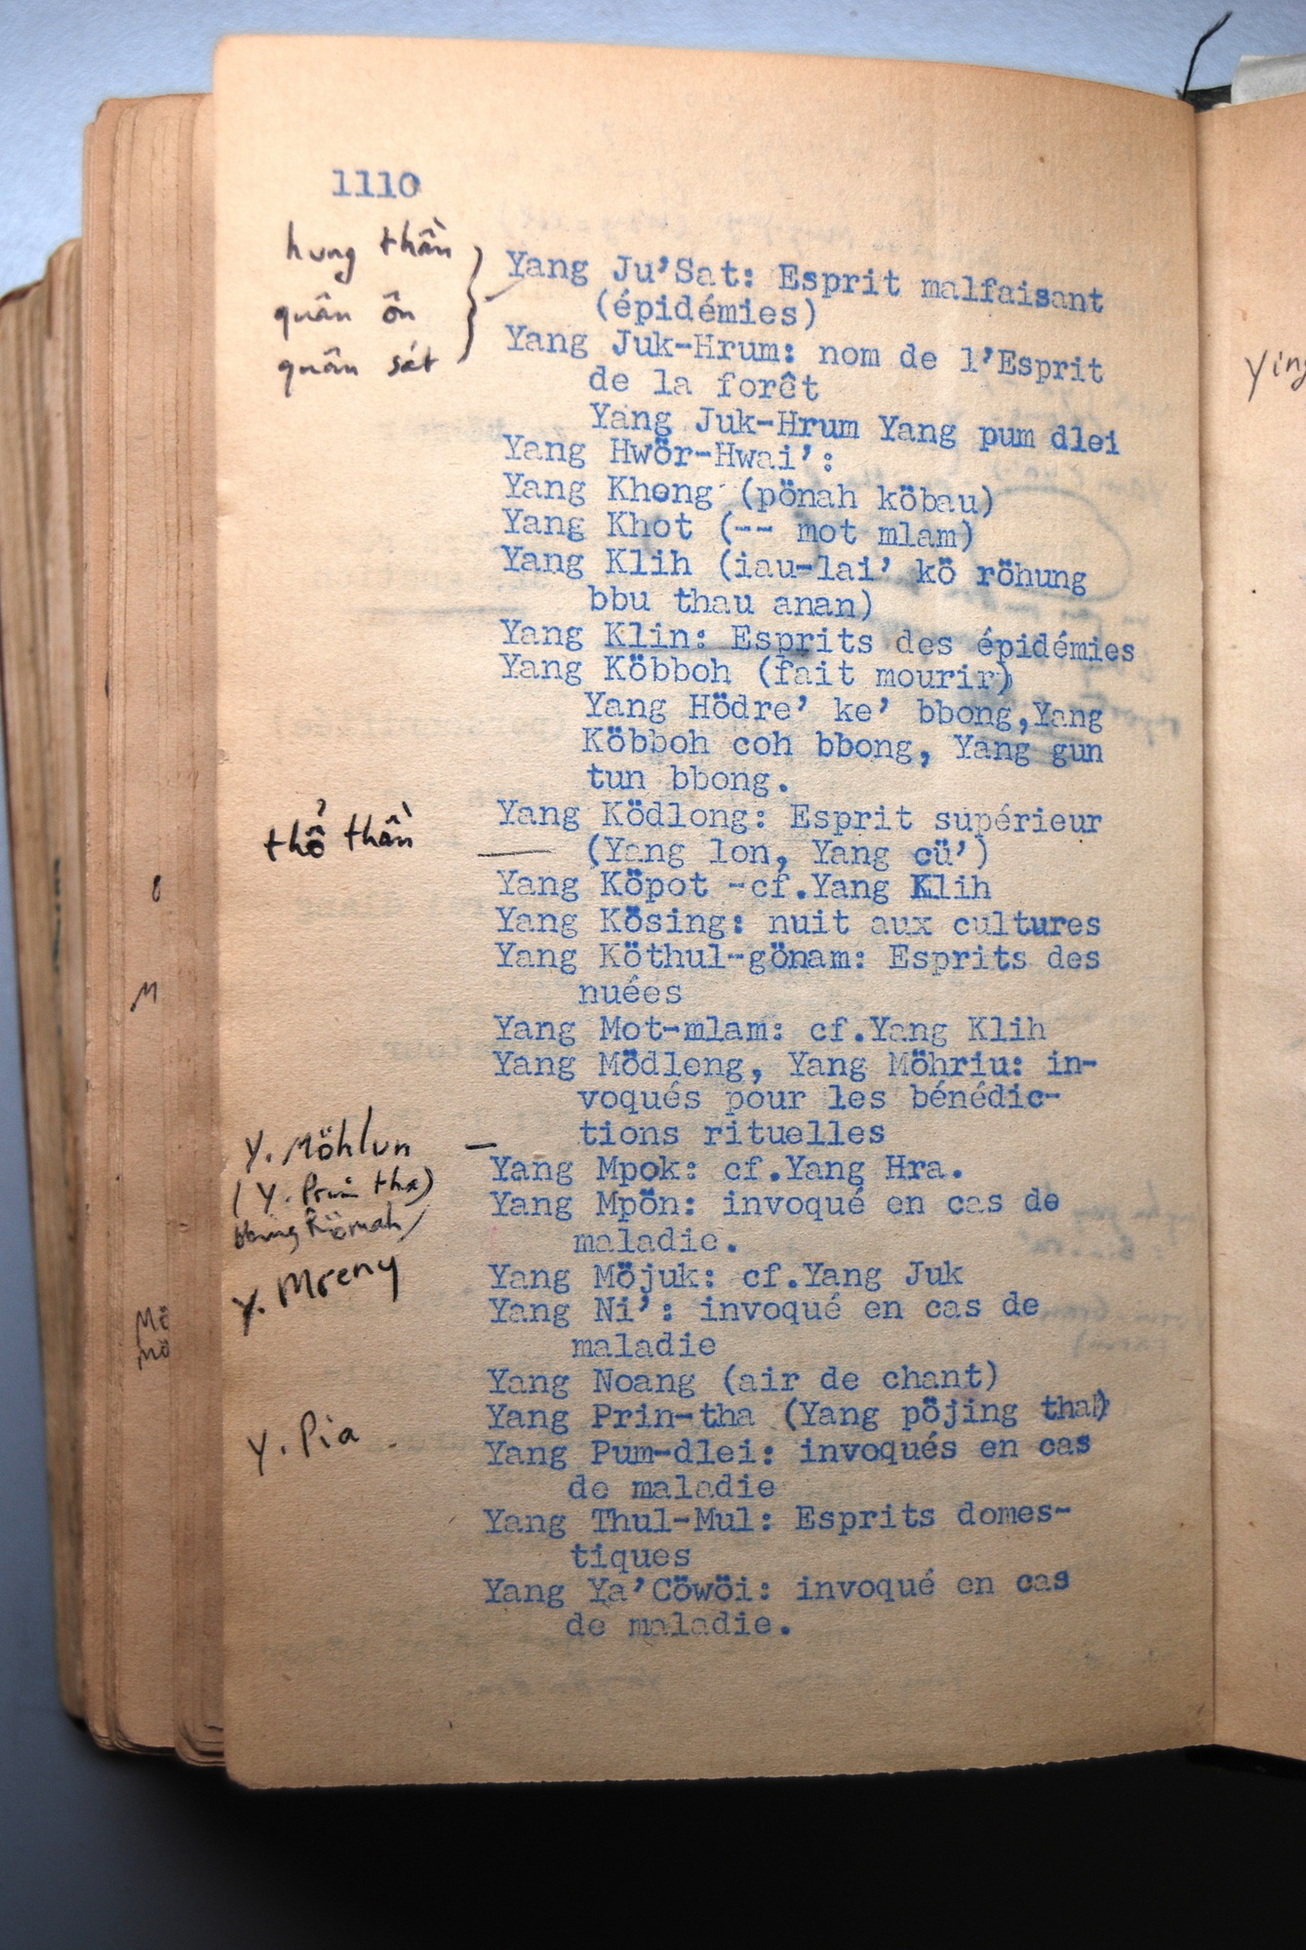 1110
hung thần
quân ôn
quân sát
Yang Ju'Sat: Esprit malfaisant
(épidémies)
Yang Juk-Hrum: nom de l'Esprit
de la forêt
Yang Juk-Hrum Yang pum dlei
Yang Hwör-Hwai':
Yang Kheng (pönah köbau)
Yang Khot (-- mot mlam)
Yang Klih (iau-lai' kö röhung
bbu thau anan)
Yang Klin: Esprits des épidémies
Yang Köbboh (fait mourir)
Yang Hödre' ke' bbong,Yang
Köbboh coh bbong, Yang gun
tun bbong.
thổ thần
Yang Ködlong: Esprit supérieur
(Yang lon, Yang cü')
Yang Köpot -cf.Yang Klih
Yang Kösing: nuit aux cultures
Yang Köthul-gönam: Esprits des
nuées
Yang Mot-mlam: cf.Yang Klih
Yang Mödleng, Yang Möhriu: in-
voqués pour les bénédic-
tions rituelles
Y. Möhlun
(Y. Prin tha)
Yang Mpok: cf.Yang Hra.
Yang Mpön: invoqué en cas de
maladie.
Y. Mreny
Yang Möjuk: cf.Yang Juk
Yang Ni': invoqué en cas de
maladie
Yang Noang (air de chant)
Yang Prin-tha (Yang pöjing thah)
Y. Pia
Yang Pum-dlei: invoqués en cas
de maladie
Yang Thul-Mul: Esprits domes-
tiques
Yang Ya'Cöwöi: invoqué en cas
de maladie.